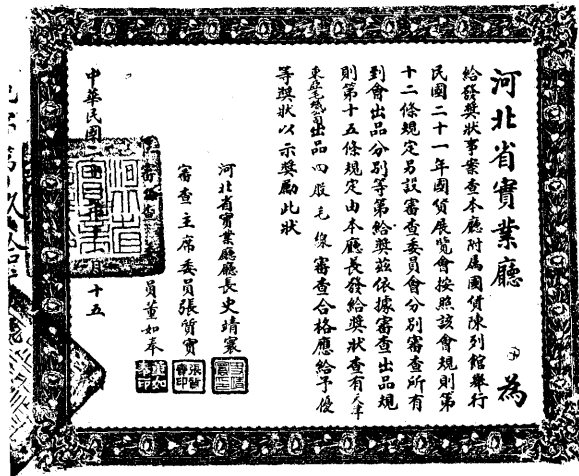 河北省實業廳 為
給發獎狀事案查本廳附属國貨陳列館舉行
民國二十一年國貨展覽會按照該會規則第
十二條規定另設審查委員會分別審查所有
到會出品分別等第給獎兹依據審查出品規
則第十五條規定由本廳長發給獎狀查有天津
東亞毛呢公司出品四股毛線審查合格應給予優
等獎狀以示獎勵此狀
河北省實業廳廳長史靖寰
審查主席委員張質實
審查 員董如奉
中華民國二 月十五